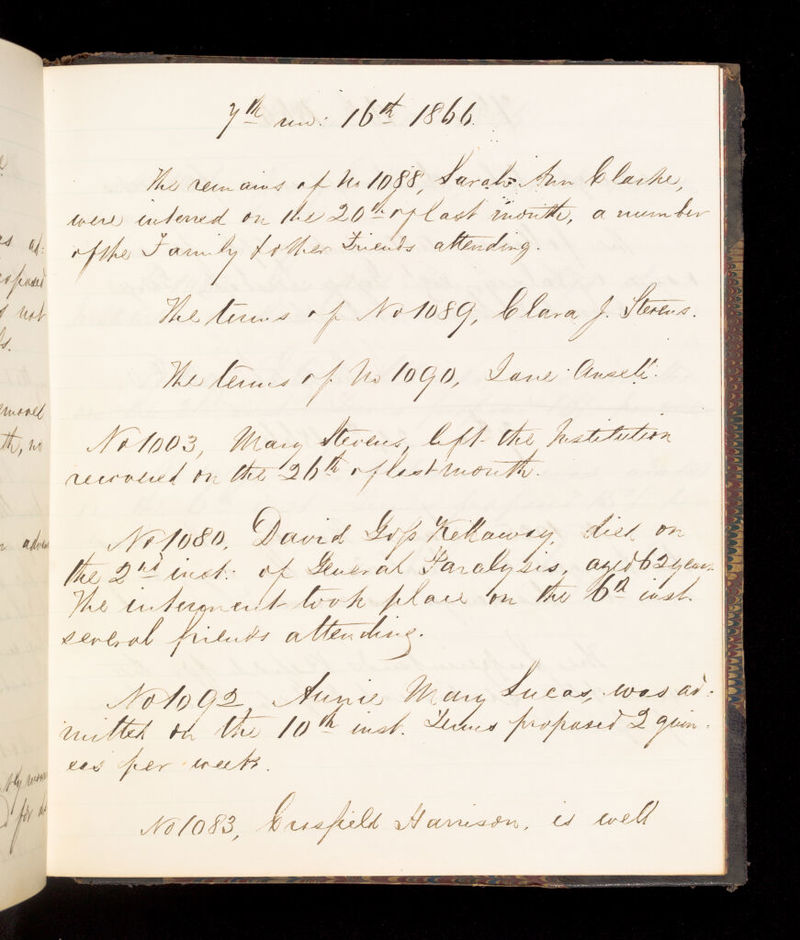 7th mo: 16th 1866.
The remains of No 1088, Sarah Ann Clarke,
were interred on the 20th of last month, a number
of the Family & other Friends attending.
The terms of No 1089, Clara J. Stevens.
The terms of No 1090, Jane Ansell.
No 1003, Mary Stevens, left the Institution
recovered on the 26th of last month.
No 1080, David Goss Kellaway, died on
the 2nd inst: of General Paralysis, aged 62 years.
The interment took place on the 6th inst.
several friends attending.
No 1092, Annie Mary Lucas, was ad:
mitted on the 10th inst. Terms proposed 2 guin:
eas per week.
No 1083, Crosfield Harrison, is well